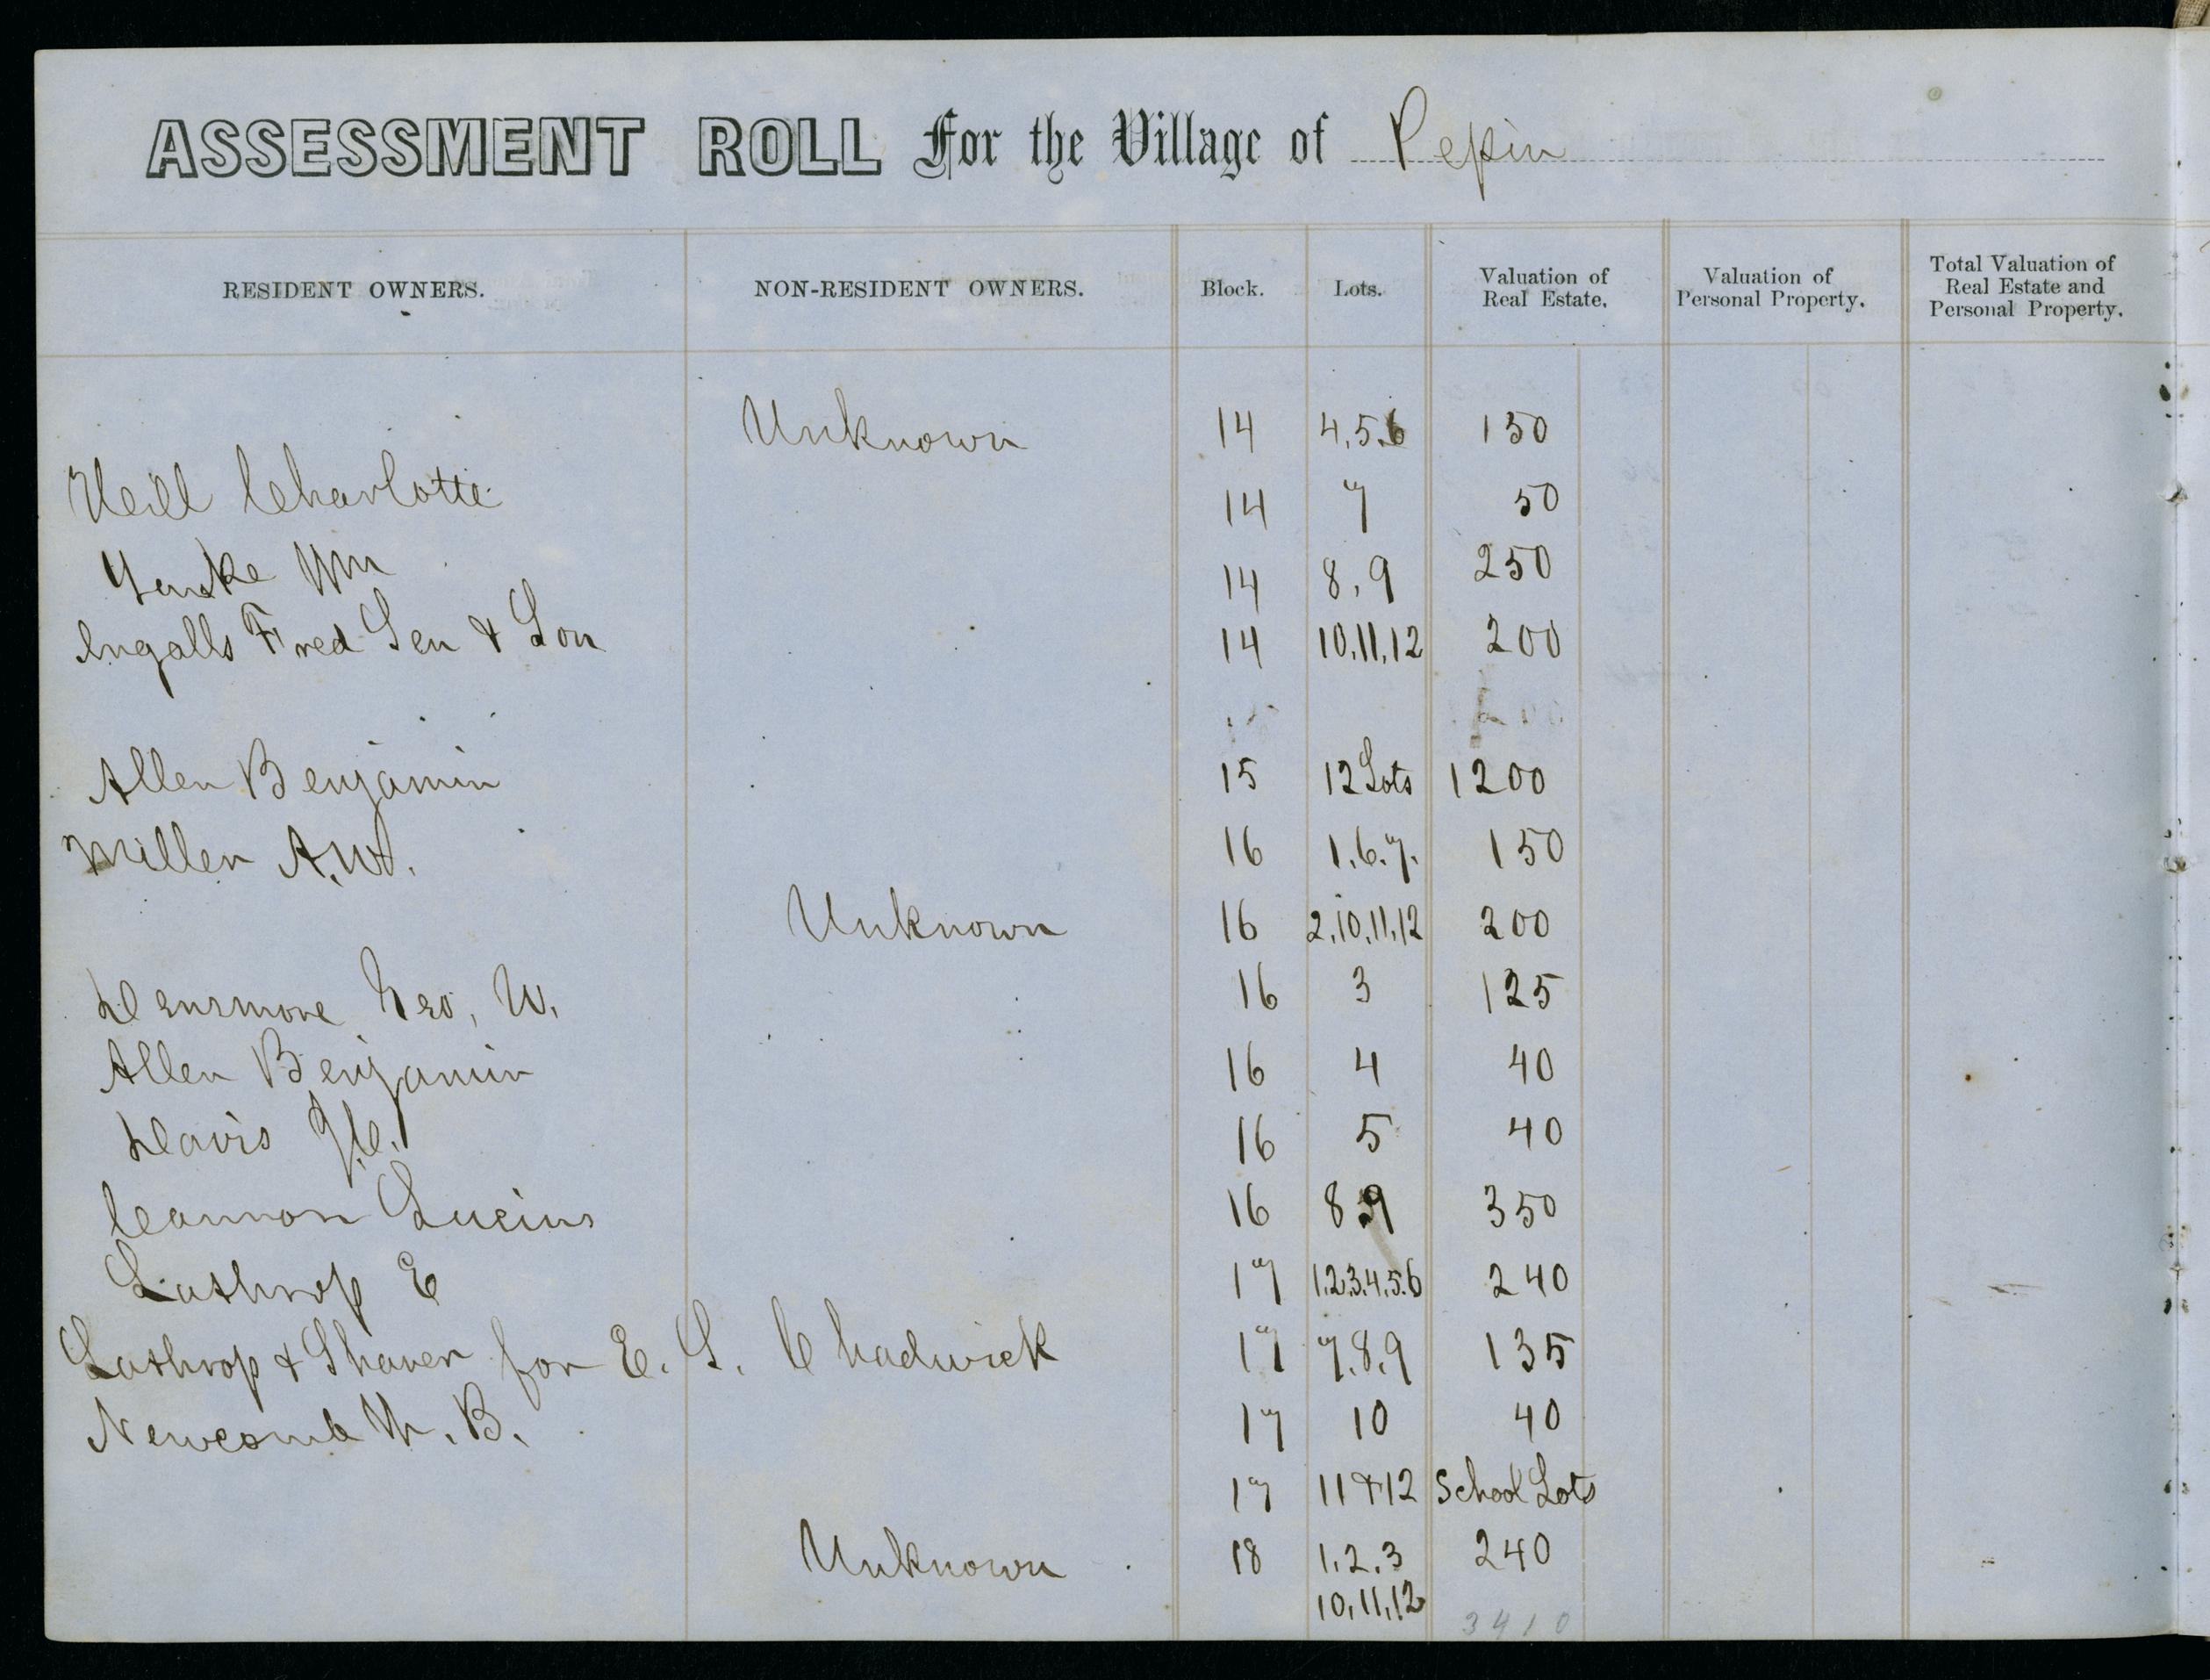 ASSESSMENT ROLL For the Village of Pepin
RESIDENT OWNERS. NON-RESIDENT OWNERS. Block. Lots. Valuation of Real Estate. Valuation of Personal Property. Total Valuation of Real Estate and Personal Property.
Unknown 14 4,5,6 150
Neill Charlotte 14 7 50
Wm 14 8,9 250
Ingalls Fred Sen & Son 14 10,11,12 200
Allen Benjamin 15 12 Lots 1200
Miller A.W. 16 1.6.7. 150
Unknown 16 2,10,11,12 200
Densmore Geo, W. 16 3 125
Allen Benjamin 16 4 40
Davis J.C. 16 5 40
Cannon Lucius 16 8,9 350
Lathrop E 17 1.2.3.4.5.6 240
Lathrop & Shaver for E. S. Chadwick 17 7.8.9 135
Newcomb W. B. 17 10 40
17 11 & 12 School Lots
Unknown 18 1.2.3 240
10,11,12
3410